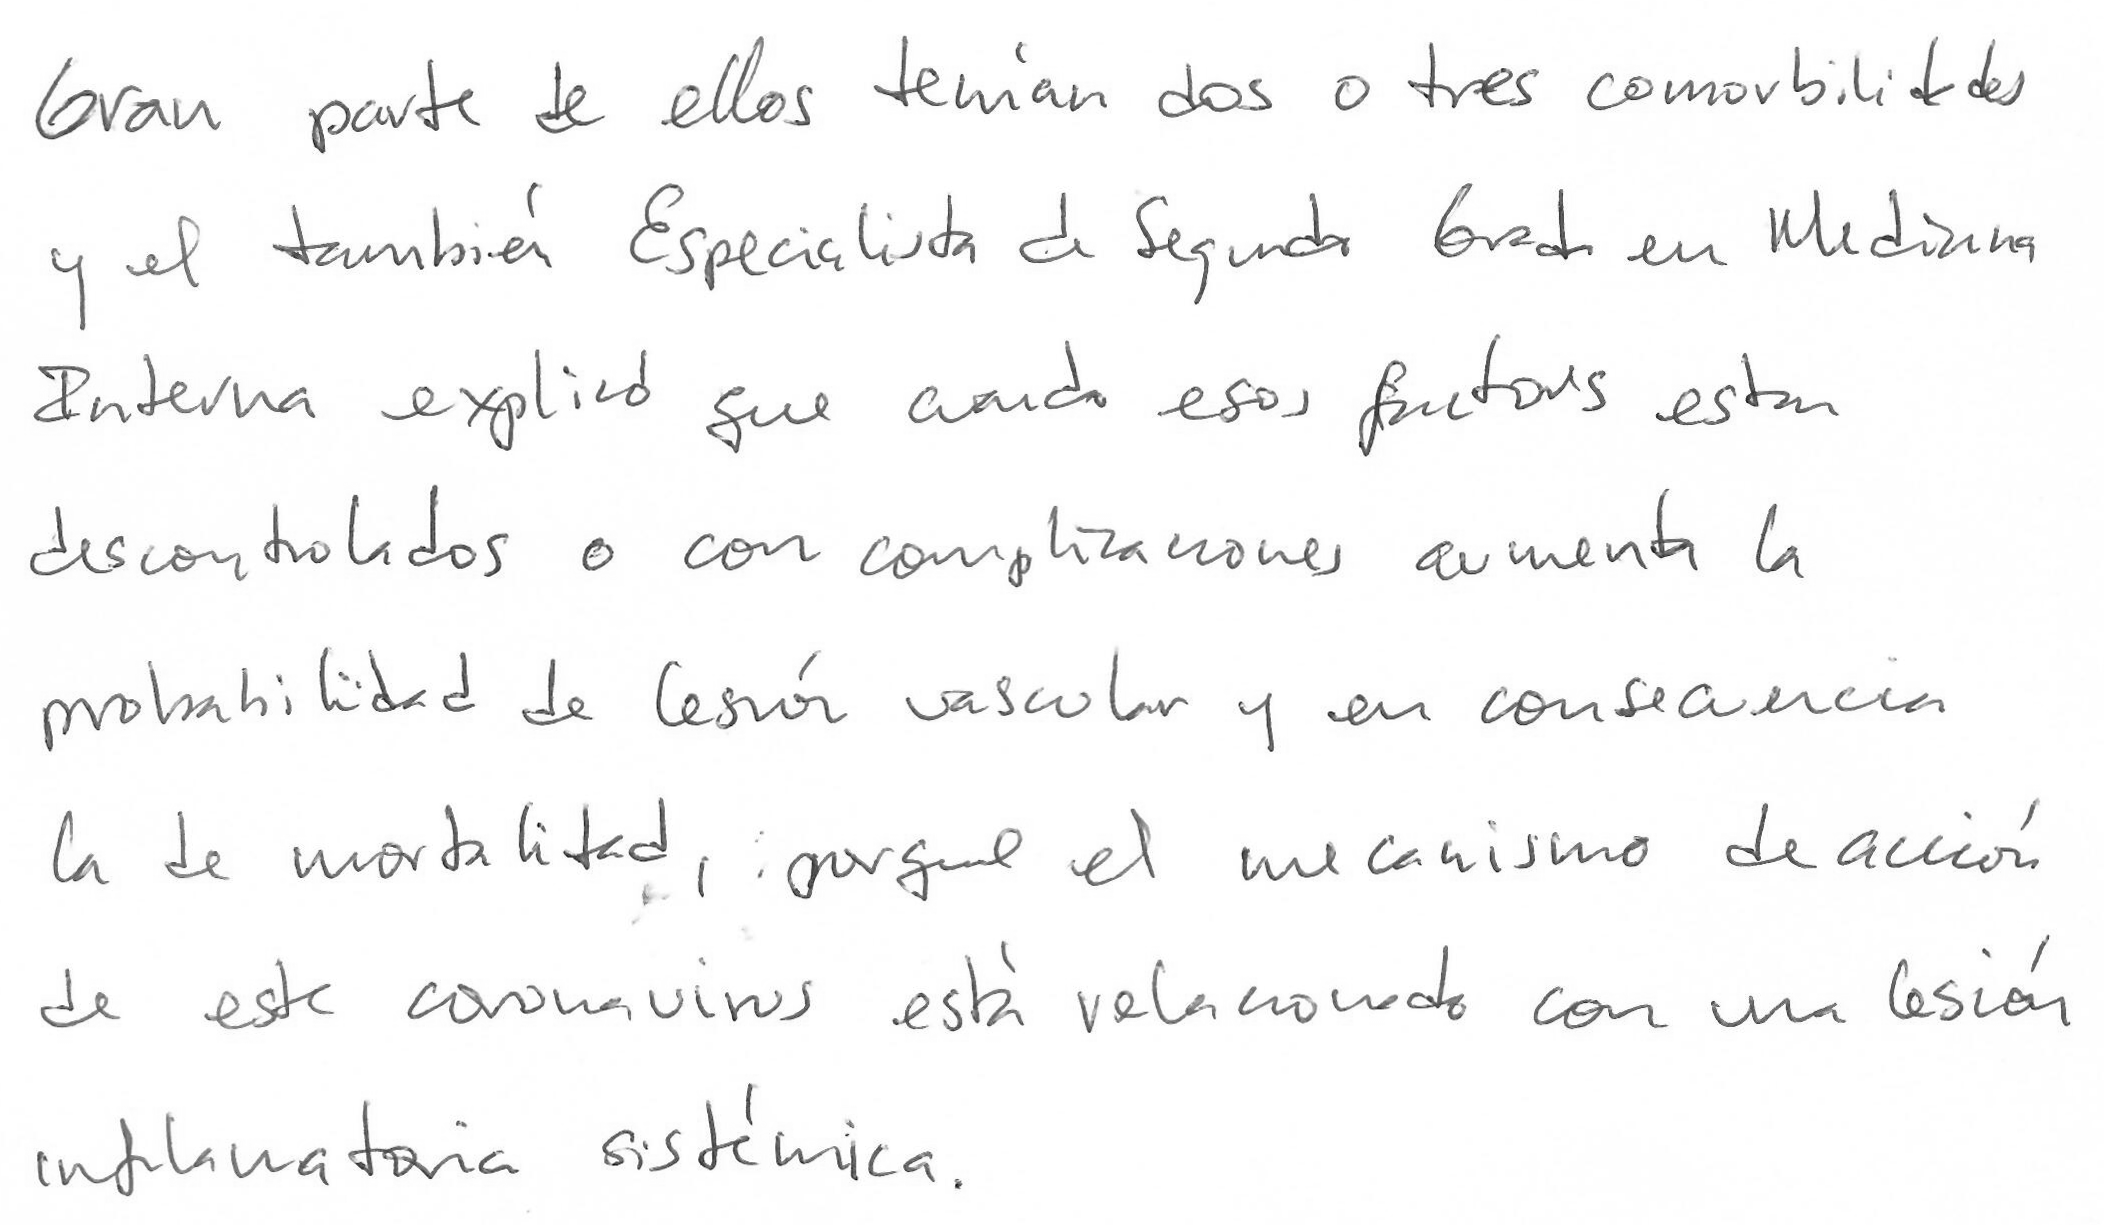 Gran parte de ellos tenían dos o tres comorbilidades
y el también Especialista de Segundo Grado en Medicina
Interna explicó que cuando esos factores estan
descontrolados o con complicaciones aumenta la
probabilidad de lesión vascular y en consecuencia
la de mortalidad, porque el mecanismo de acción
de este coronavirus está relacionado con una lesión
inflamatoria sistémica.